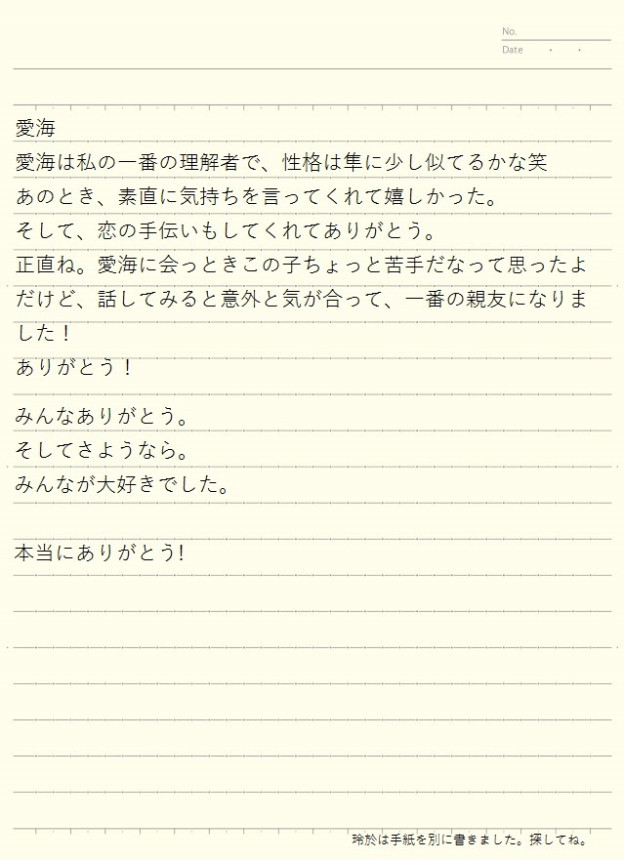 No.
Date ・ ・
愛海
愛海は私の一番の理解者で、性格は隼に少し似てるかな笑
あのとき、素直に気持ちを言ってくれて嬉しかった。
そして、恋の手伝いもしてくれてありがとう。
正直ね。愛海に会っときこの子ちょっと苦手だなって思ったよ
だけど、話してみると意外と気が合って、一番の親友になりま
した！
ありがとう！
みんなありがとう。
そしてさようなら。
みんなが大好きでした。
本当にありがとう!
玲於は手紙を別に書きました。探してね。